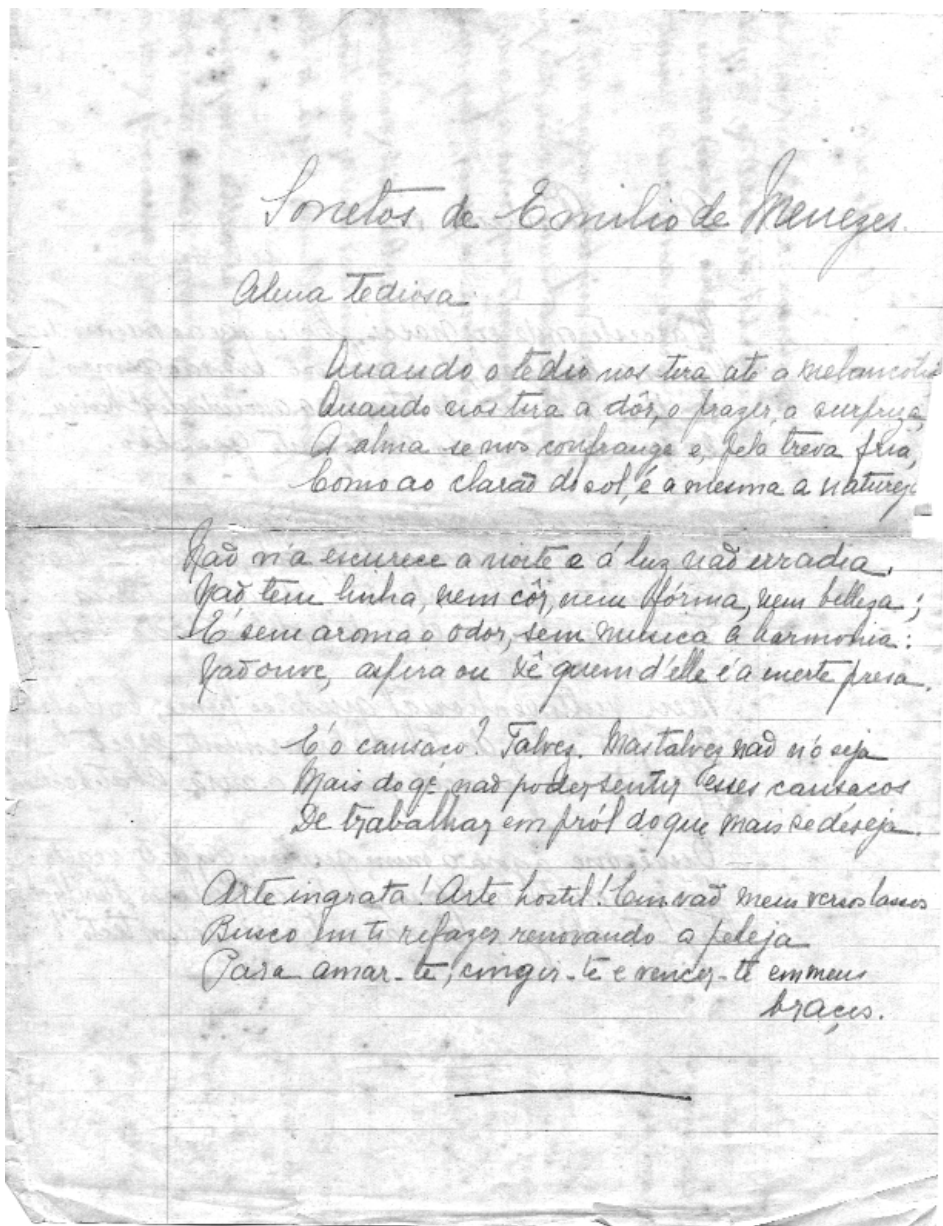 Sonetos de Emilio de Menezes.
Alma tediosa.
Quando o tedio nos tira até a melancoli
Quando nos tira a dôr, o prazer, a surpreza,
A alma se nos confrange e, pela treva fria,
Como ao clarão do sol, é a mesma a naturez
Não n'a escurece a noite e a luz não erradia.
Não tem linha, nem côr, nem fórma, nem belleza;
É sem aroma o odor, sem musica a harmonia:
Não ouve, aspira ou vê quem d'elle é a inerte presa.
É o cansaco? Talvez. Mas talvez não n'o seja
Mais do q̃ não poder sentir esses cansacos
De trabalhar em pról do que mais se deseja.
Arte ingrata! Arte hostil! Em vão meus versos lassos
Busco em ti refazer renovando a peleja
Para amar-te, cingir-te e vencer-te em meus
braços.